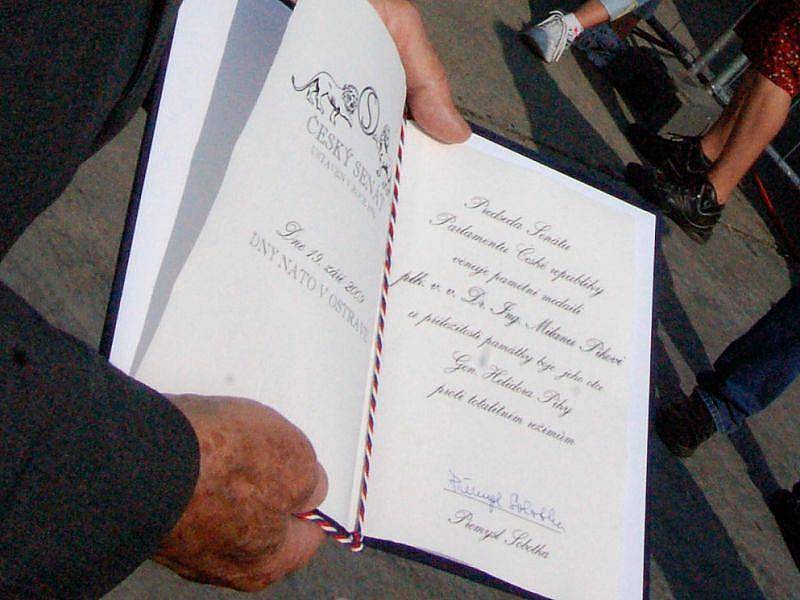 ČESKÝ SENÁT
Dne 19. září 2009
DNY NATO V OSTRAVĚ
Předseda Senátu
Parlamentu České republiky
věnuje pamětní medaili
plk. v. v. Dr. Ing. Milanu Píkovi
u příležitosti památky boje jeho otce
Gen. Heliodora Píky
proti totalitním režimům
Přemysl Sobotka
Přemysl Sobotka